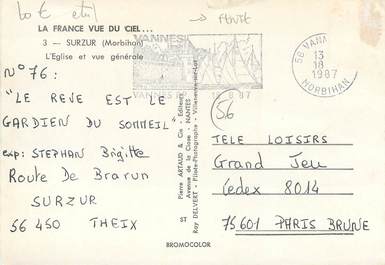 → FENTE
LA FRANCE VUE DU CIEL...
3 — SURZUR (Morbihan)
L'Eglise et vue générale
VANNES
56 VANN
13
8
1987
MORBIHAN
N° 76 :
"LE REVE EST LE
GARDIEN DU SOMMEIL"
exp: STEPHAN Brigitte
Route De Brarun
SURZUR
56 450 THEIX
Pierre ARTAUD & Cie - Editeurs
Avenue de la Close - NANTES
ST
Ray DELVERT - Pilote-Photographe - Villeneuve-sur-Lot
56
TELE LOISIRS
Grand Jeu
Cedex 8014
75601 PARIS BRUNE
BROMOCOLOR